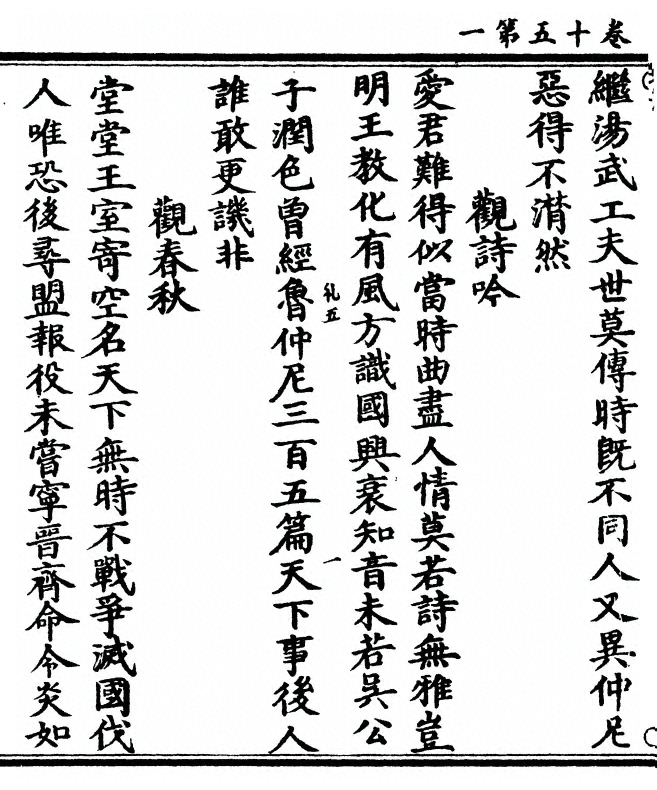 卷十五第一
繼湯武工夫世莫傳時既不同人又異仲尼
惡得不潸然
觀詩吟
愛君難得似當時曲盡人情莫若詩無雅豈
明王教化有風方識國興衰知音未若吳公
子潤色曾經魯仲尼三百五篇天下事後人
誰敢更譏非
觀春秋
堂堂王室寄空名天下無時不戰爭滅國伐
人唯恐後尋盟報役未嘗寧晉齊命令炎如